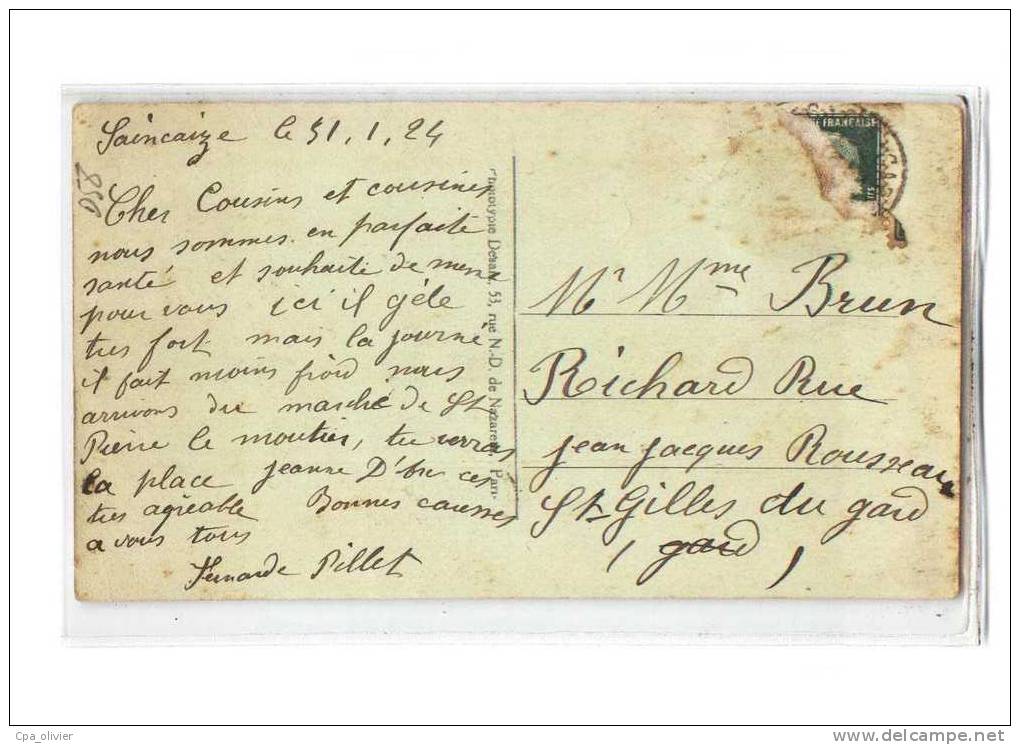 Saincaize le 31.1.24
D58
Cher Cousins et cousines
nous sommes en parfaite
santé et souhaite de meme
pour vous ici il gèle
tres fort mais la journé
il fait moins froid nous
arrivons du marché de St
Pierre le moutier, tu verras
la place jeanne D'Arc ces
tres agréable Bonnes caresses
a vous tous
Pillet
53, rue N.-D. de Nazareth,
FRANÇAISE
Mr Mme Brun
Richard Rue
jean jacques Rousseau
St Gilles du gard
(gard)
Cpa_olivier
www.delcampe.net